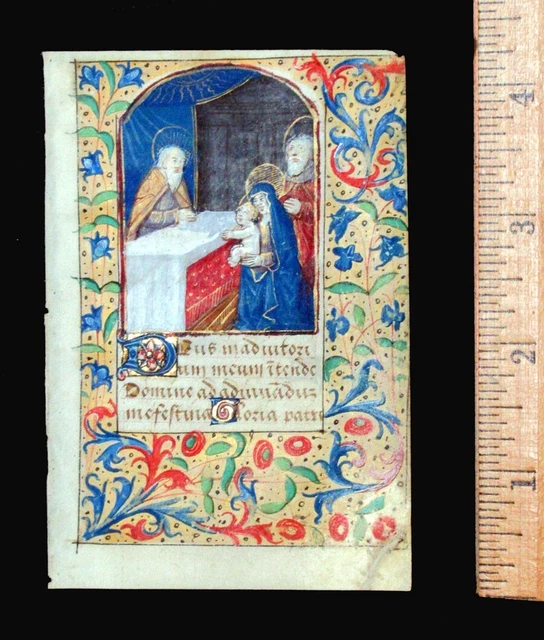 Deus in adiutori
um meum ītende
Domine ad adiuuādum
me festina Gloria patri
4
3
2
1